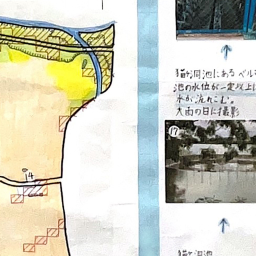 猫ヶ洞池にあるベルマ
池の水位が一定以上に
水が流れこむ。
大雨の日に撮影
17
14
猫ヶ洞池